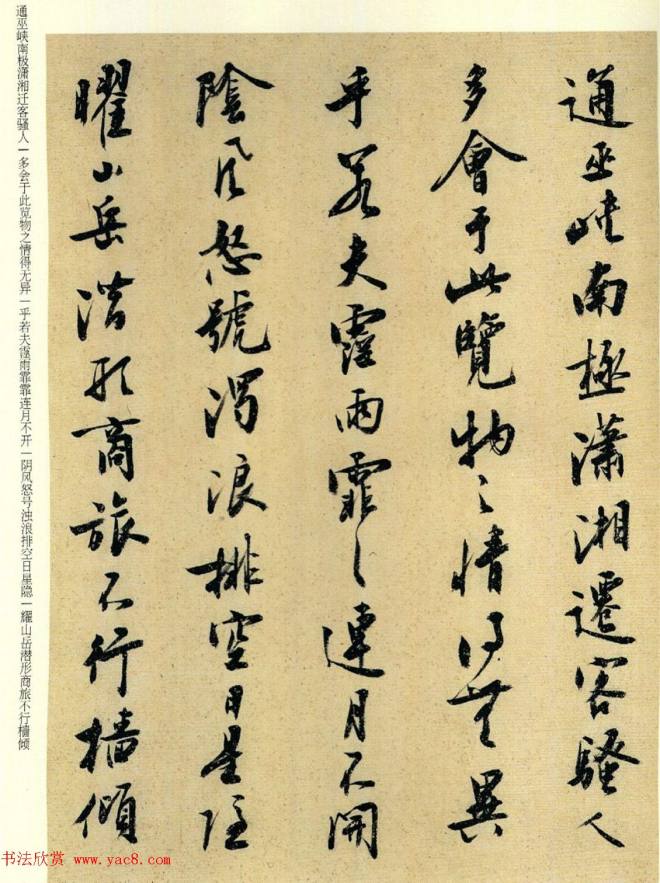 通巫峡南极潇湘迁客骚人一多会于此览物之情得无异一乎若夫霪雨霏霏连月不开一阴风怒号浊浪排空日星隐一耀山岳潜形商旅不行樯倾
通巫峡南極瀟湘遷客騷人
多會于此覽物之情得無異
乎若夫霪雨霏〻連月不開
陰風怒號濁浪排空日星隱
曜山岳潛形商旅不行檣傾
书法欣赏 www.yac8.com